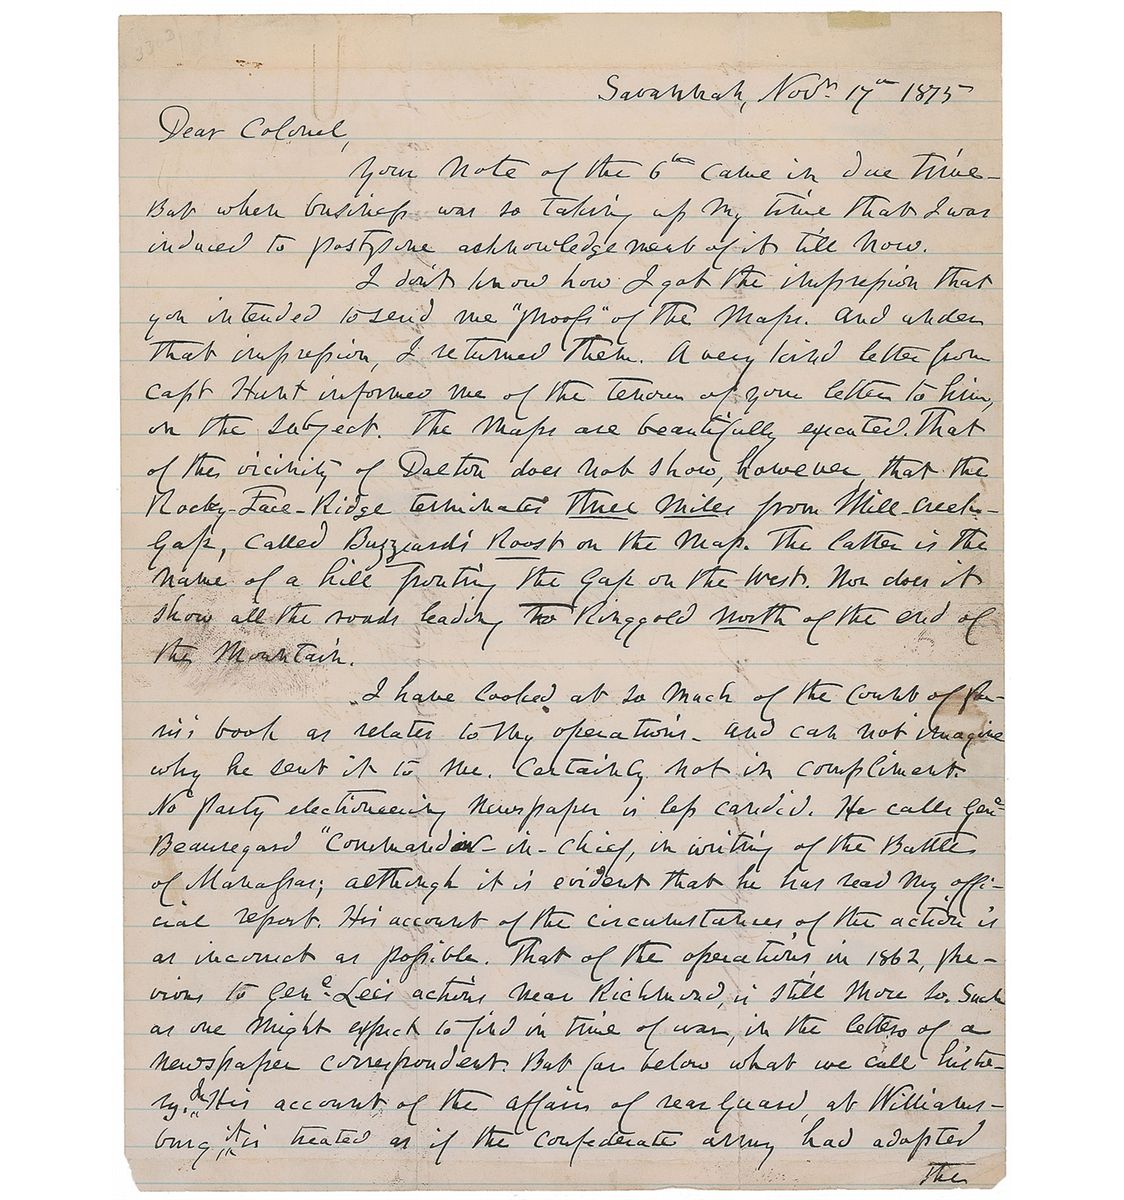 3303
Savannah, Novr. 17th 1875
Dear Colonel,
Your note of the 6th came in due time-
But when business was so taking up my time that I was
induced to postpone acknowledgement of it till now.
I don't know how I got the impression that
you intended to send me "proofs" of the Maps. And under
that impression, I returned them. A very kind letter from
Capt Hunt informed me of the tenor of your letter to him,
on the subject. The Maps are beautifully executed. That
of the vicinity of Dalton does not show, however, that the
Rocky-Face-Ridge terminates three miles from Mill-Creek-
Gap, called Buzzard's Roost on the Map. The latter is the
name of a hill fronting the Gap on the west. Nor does it
show all the roads leading to Ringgold north of the end of
the Mountain.
I have looked at so much of the Count of Pa-
ris' book as relates to my operations- and can not imagine
why he sent it to me. Certainly not in compliment.
No party electioneering newspaper is less candid. He calls Genl.
Beauregard "Commander-in-chief, in writing of the Battle
of Manassas; although it is evident that he has read my offi-
cial report. His account of the circumstances of the action is
as incorrect as possible. That of the operations, in 1862, pre-
vious to Genl. Lee's actions near Richmond, is still more so. Such
as one might expect to find in time of war, in the letters of a
newspaper correspondent. But far below what we call histo-
ry. In His account of the affair of rear guard, at Williams-
burg, it is treated as if the Confederate army had adopted
the